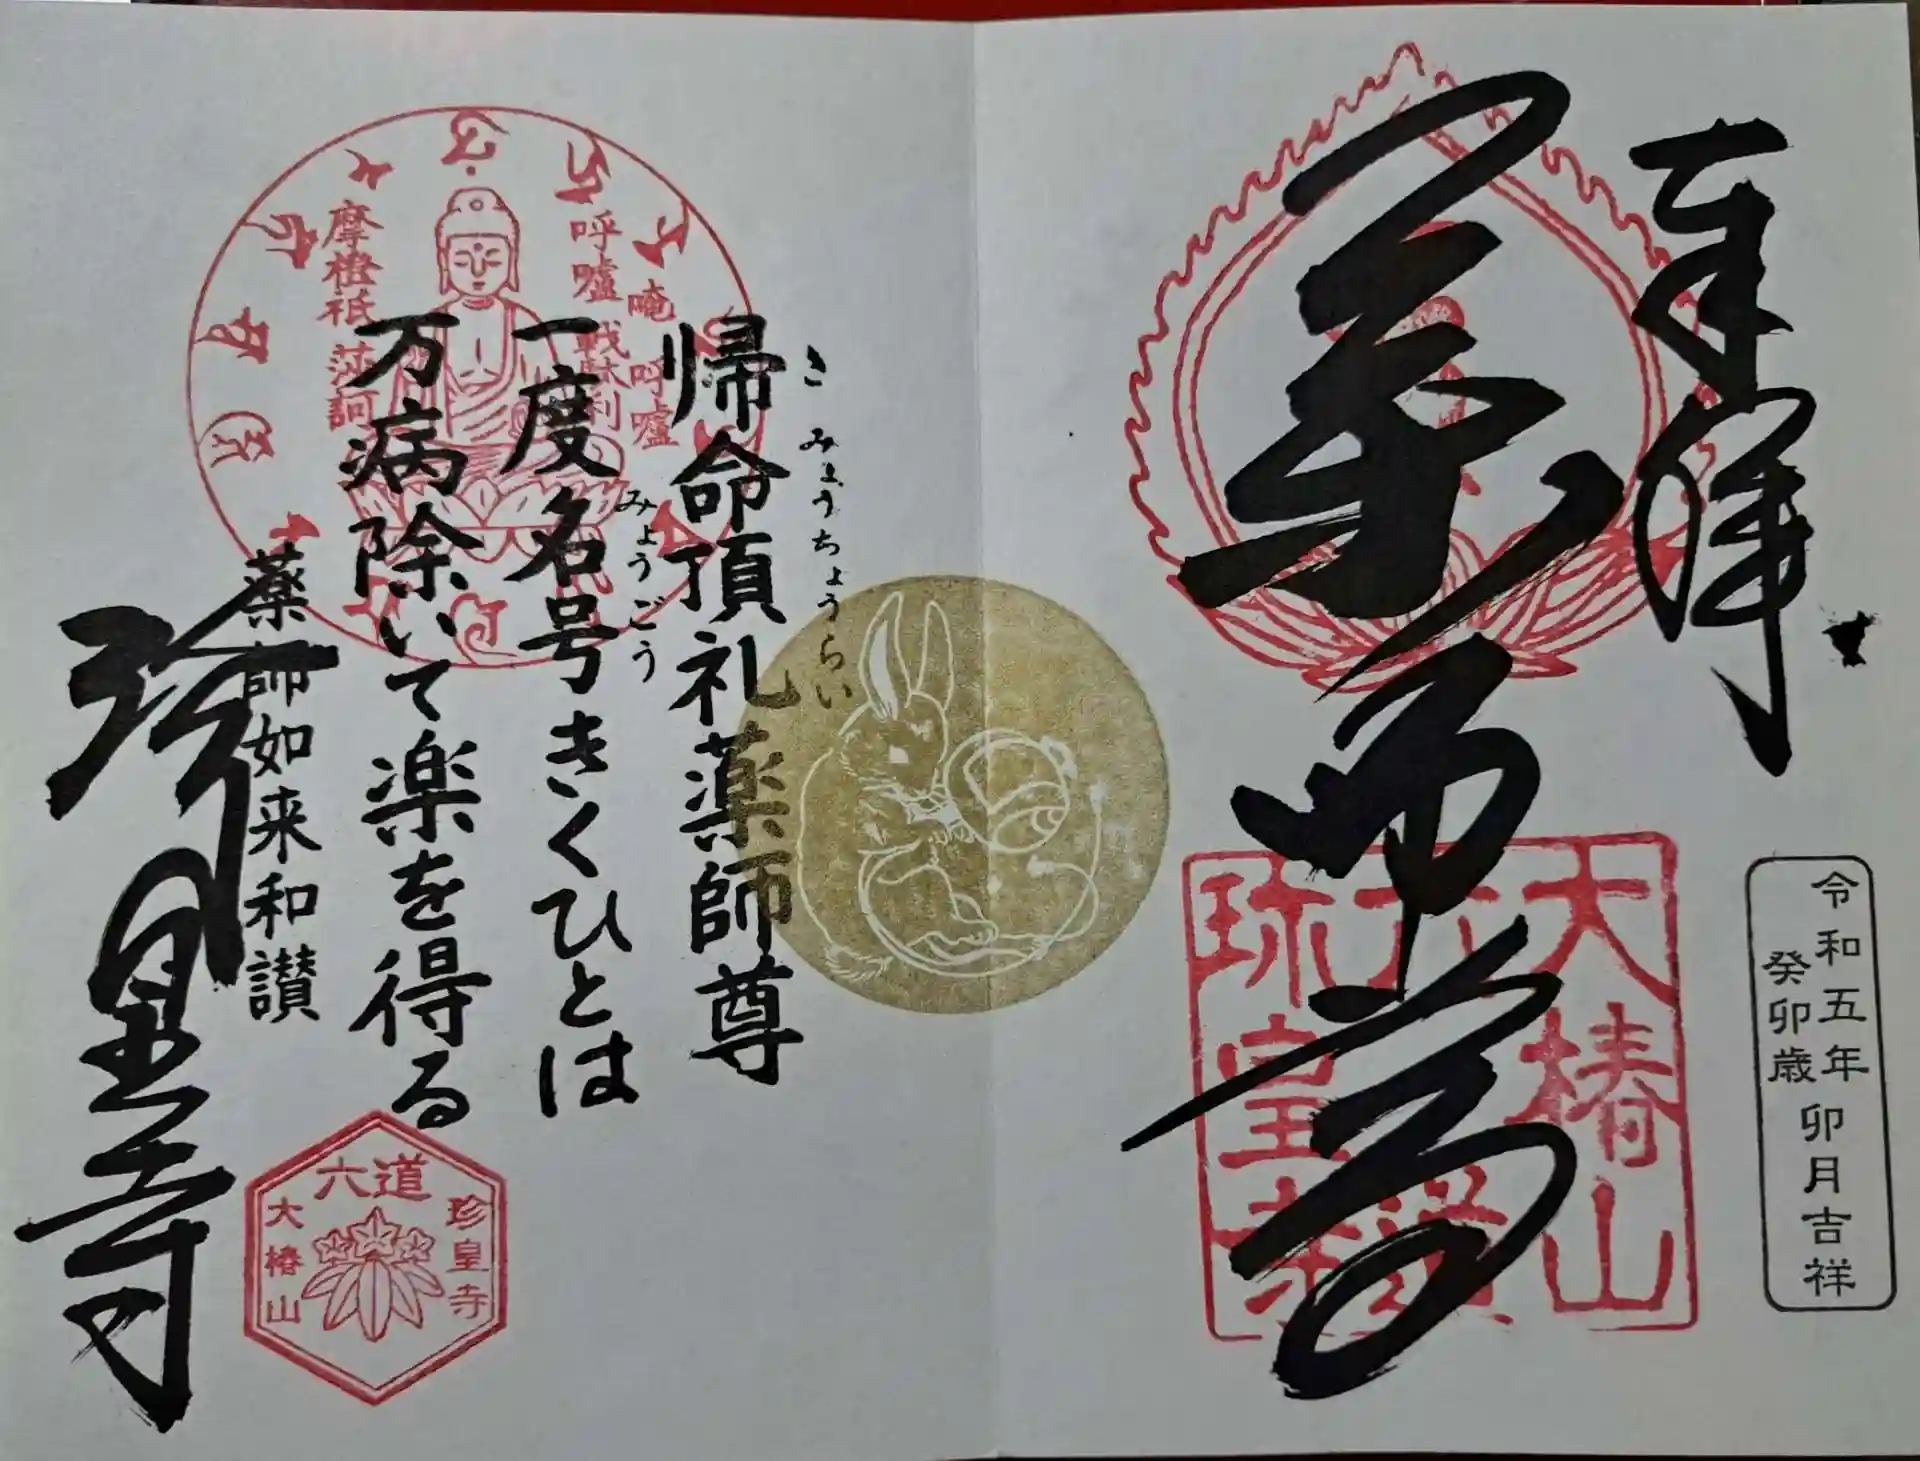 奉拝
薬師尊
令和五年
癸卯歳
卯月吉祥
大椿山
六道
珎皇寺
帰命頂礼薬師尊
きみょうちょうらい
一度名号きくひとは
みょうごう
万病除いて楽を得る
薬師如来和讃
珍皇寺
唵呼嚧
呼嚧戦駄利
摩橙祇莎訶
六道
珍皇寺
大椿山